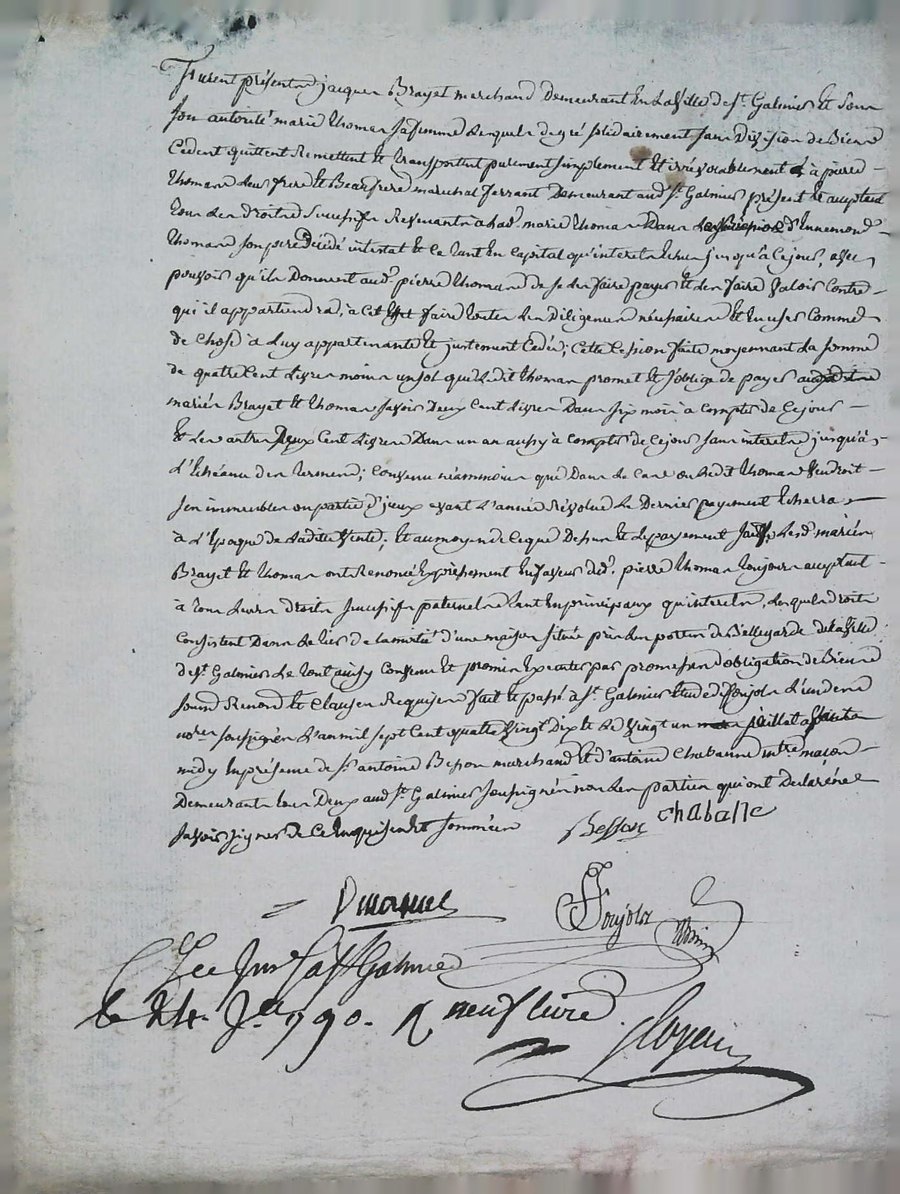 Furent présents jacques Brayet marchand Demeurant En La ville de st. Galmier Et sous
son autorité marie thomas sa femme Lesquels de gré solidairement sans Division de Biens
Cedent quittent Remettent Et transportent purement simplement Et irrévocablement à pierre
thomas Leur frere Et Beaufrere marechal ferrant Demeurant aud. st. Galmier présent Et acceptant
tous Les droits successifs Revenants a lad. marie thomas Dans d'Ennemond
thomas son pere décédé intestat Et Ce tant En Capital qu'interets Echus jusqu'à Ce jour, avec
pouvoir qu'ils Donnent aud. pierre thomas de se Les faire payer Et Les faire valoir Contre
qui il appartiendra, à Cet Effet faire toutes Les Diligences nécessaires Et En user Comme
de Chose à Luy appartenante Et justement Cedée; Cette Cession faite moyennant La somme
de quatre Cent Livres moins un sol que Ledit thomas promet Et s'oblige de payer
mariés Brayet Et thomas savoir Deux Cent Livres Dans six mois à Compter de Ce jour
Et Les autres Deux Cent Livres Dans un an aussy à Compter de Ce jour sans interets jusqu'à
L'Echéance des termes; Convenu néanmoins que Dans Le Cas où Ledit thomas Vendroit
ses immeubles ou partie d'iceux avant L'année révolue Le Dernier payement Echerra
à L'Epoque de Ladite Vente; Et au moyen de Ce que Dessus Et Le payement fait, Lesd. mariés
Brayet Et thomas ont Renoncé Expressément En faveur dud. pierre thomas toujours acceptant
à tous Leurs droits successifs paternels tant En principaux qu'interets, Lesquels droits
Consistent Dans Le tiers de La moitié d'une maison située près Les portes de Bellegarde de La ville
de st. Galmier Le tout ainsy Convenu Et promis Executer par promesses d'obligation de Biens
soumd. Renond. Et Clauses Requises fait Et passé à st. Galmier Etude de Poujola L'un des
nores. soussignés L'an mil sept Cent quatre Vingt Dix Et Le Vingt un juillet
midy En présence de sr. antoine Besson marchand Et d'antoine mtre. maçon
Demeurants tous Deux aud. st. Galmier soussignés non Les parties qui ont Déclaré ne
savoir signer de Ce Enquises Et sommées
Besson chaballe
Poujola
Le 24. Jet 1790. R neuf livres